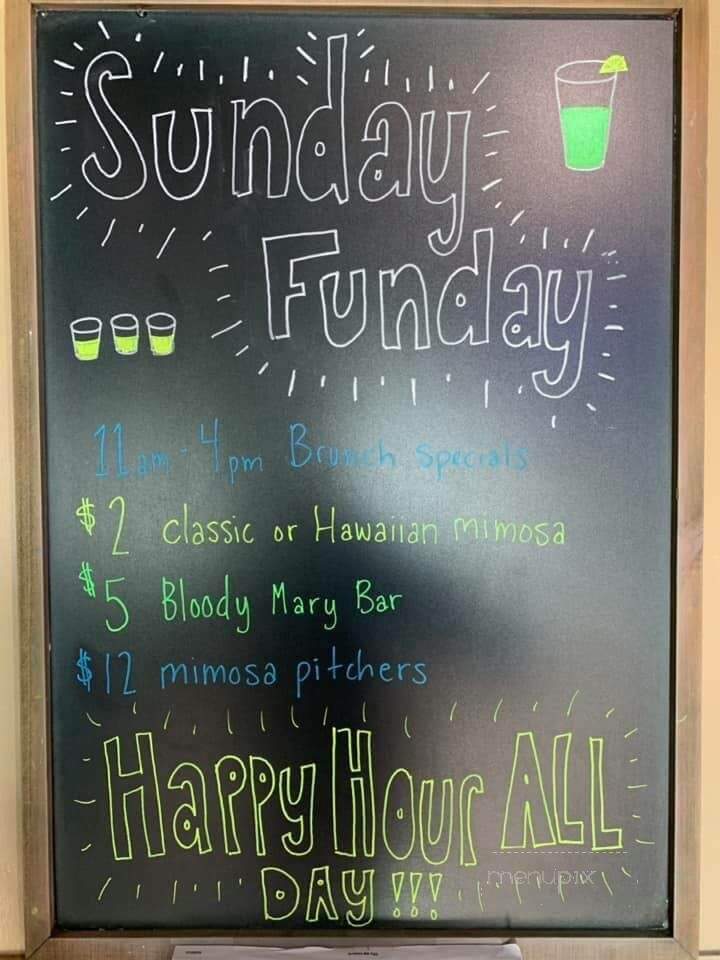 Sunday
Funday
11am - 4pm Brunch Specials
$2 classic or Hawaiian mimosa
$5 Bloody Mary Bar
$12 mimosa pitchers
Happy Hour ALL
DAY!!!
menupix